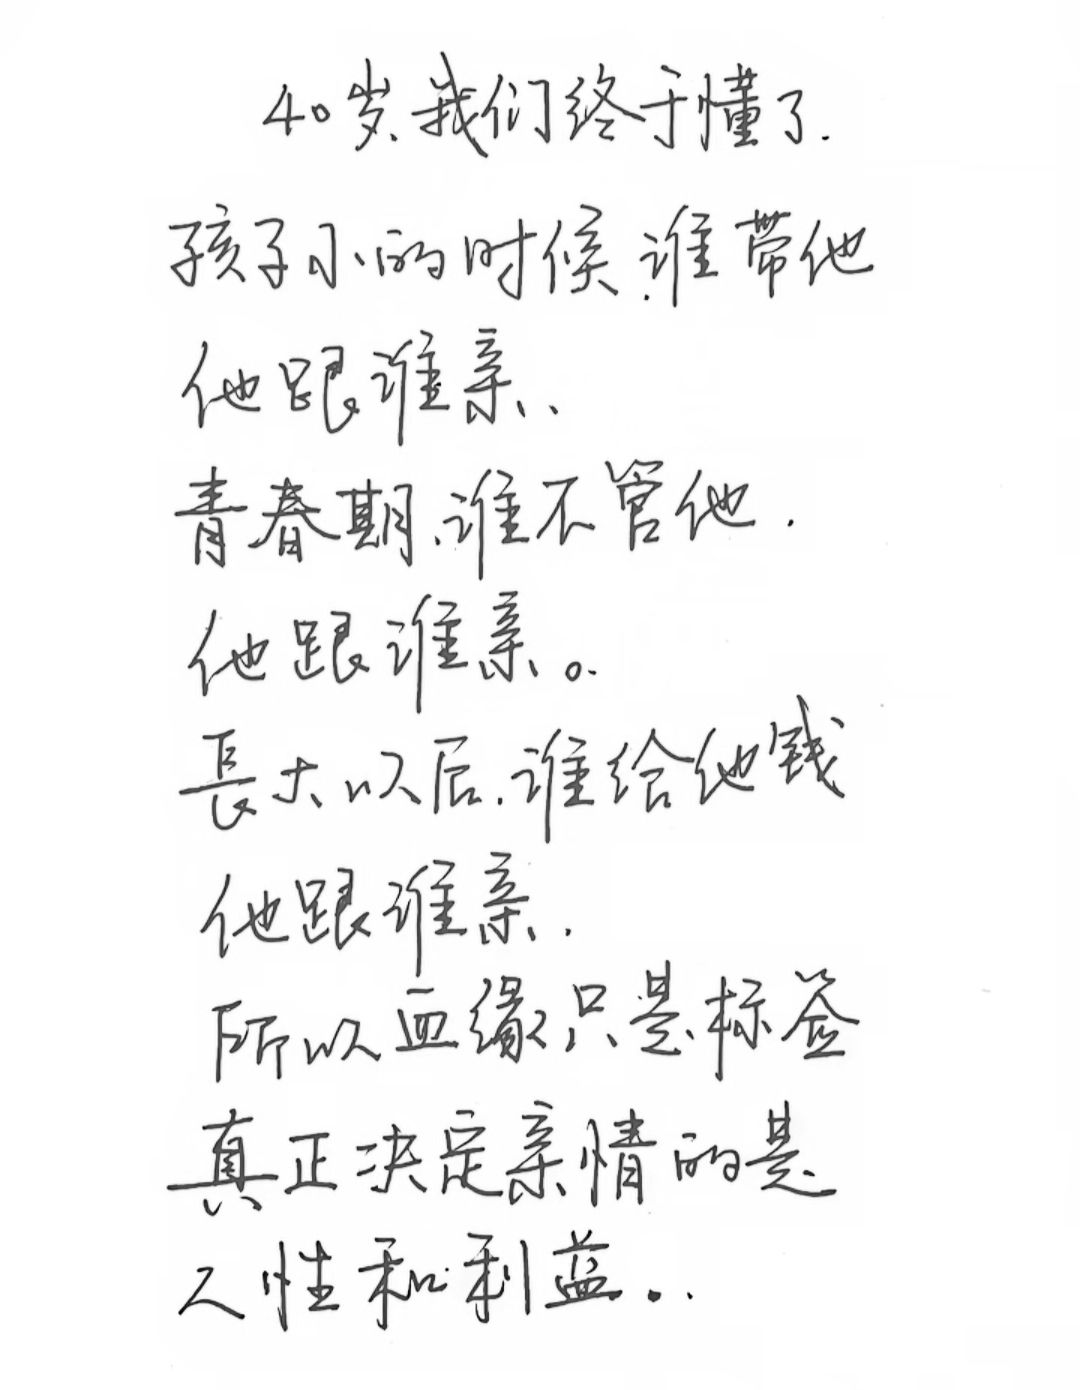 40岁、我们终于懂了.
孩子小的时候、谁带他
他跟谁亲、
青春期、谁不管他.
他跟谁亲。
長大以后、谁给他钱
他跟谁亲.
所以血缘只是标签
真正决定亲情的是
人性和利益..